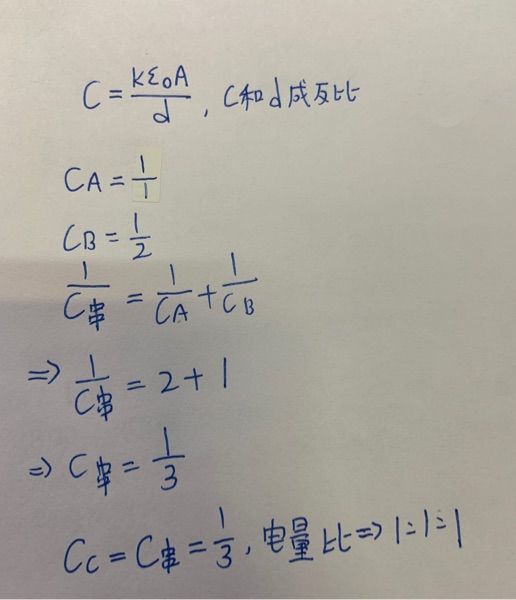 C = kε₀A/d , C和d成反比
CA = 1/1
CB = 1/2
1/C串 = 1/CA + 1/CB
⇒ 1/C串 = 2 + 1
⇒ C串 = 1/3
Cc = C串 = 1/3 , 电量比⇒ 1:1:1